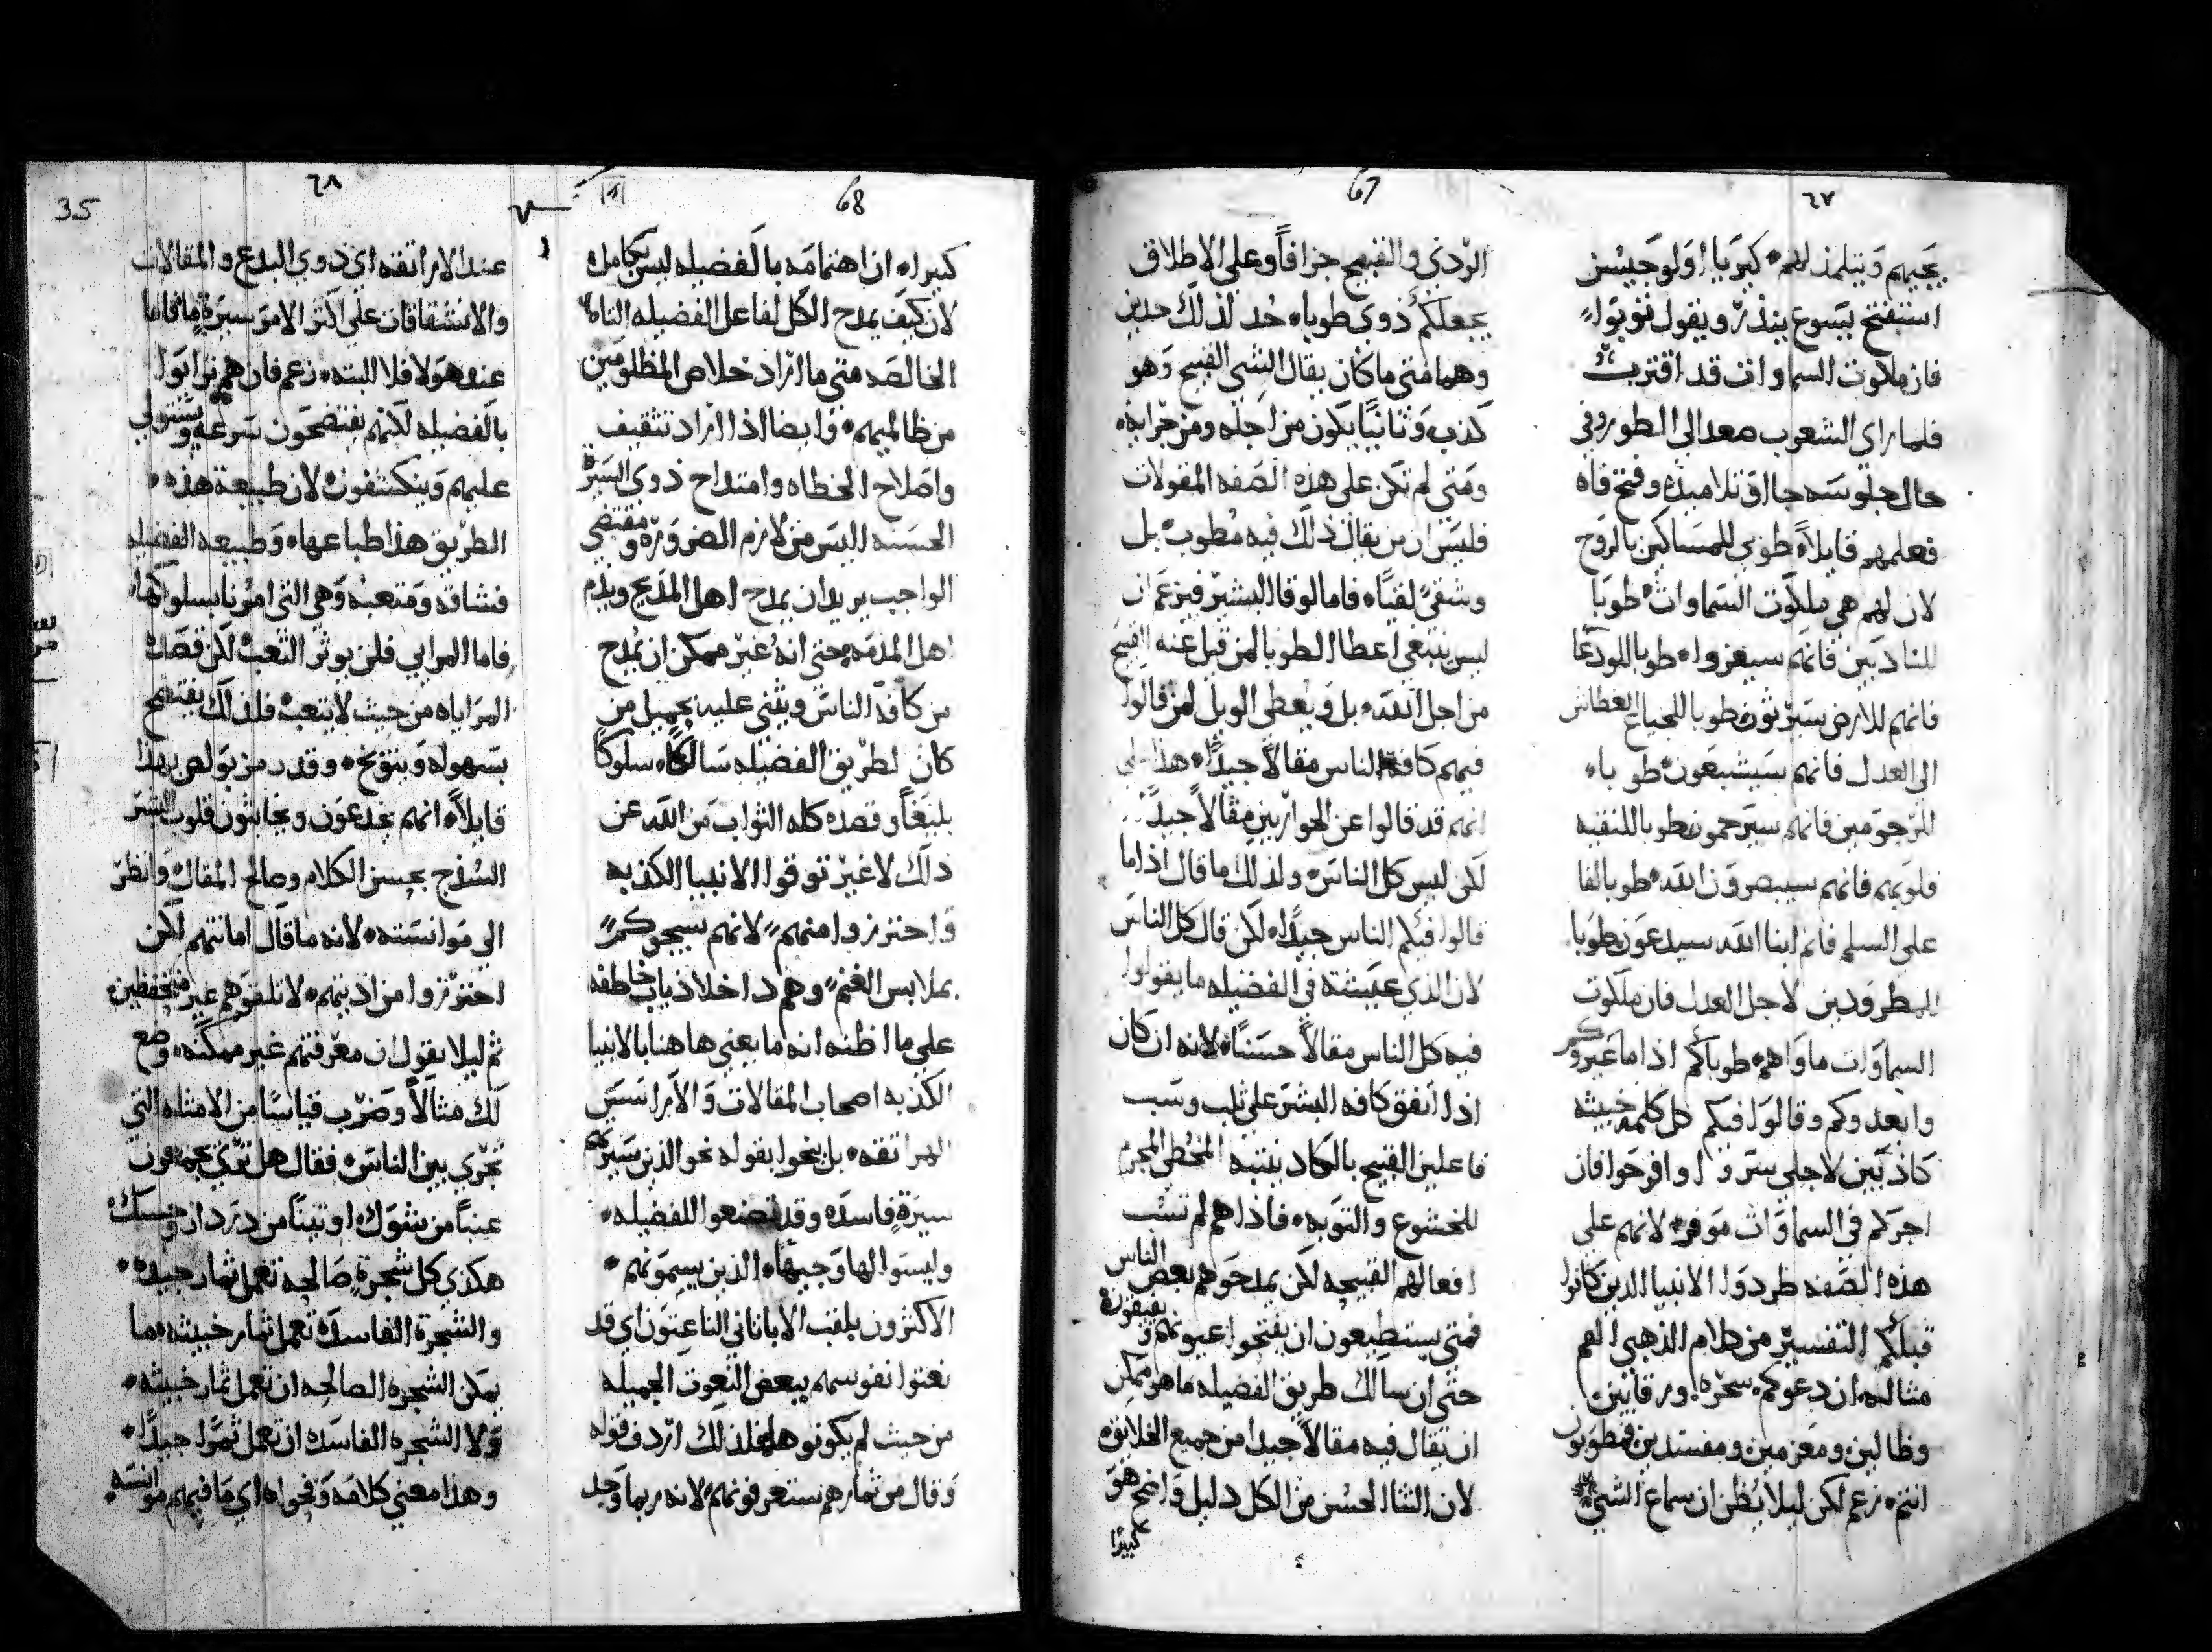 ٦٧
67
يجيبهم ويتلمذ لهم كيريا اولوجيسن
استفتح يسوع ينذر ويقول توبوا
فان ملكوت السماوات قد اقتربت
فلما راى الشعوب صعد الى الطور وفي
حال جلوسه جا اق تلاميذه وفتح فاه
فعلمهم قايلاً طوبى للمساكين بالروح
لان لهم هي ملكوت السماوات طوبا
للنادبين فانهم سيعزوا طوبا للودعا
فانهم للارض سيرثون طوبا للجياع العطاش
الى العدل فانهم سيشبعون طوبا
للرحومين فانهم سيرحمون طوبا للنقيه
قلوبهم فانهم سيبصرون الله طوبا لفا
على السلم فانم ابنا الله سيدعون طوبا
المطرودين لاجل العدل فان ملكوت
السماوات ماواهم طوباكم اذا ما عيروكم
وابعدوكم وقالوا فيكم كل كلمه خبيثه
كاذبين لاجلي سروا وافرحوا فان
اجركم في السماوات موفر لانهم على
هذه الصفه طردوا الانبيا الذين كانوا
قبلكم التفسير من كلام الذهبي الفم
مثاله ان دعوكم سحره ورقايين
وظالين ومعزمين ومفسدين فمطوبون
انتم زعم لكن ليلا يظن ان سماع الشي
الردي والقبيح جزافاً وعلى الاطلاق
يجعلكم ذوي طوبا حد لذلك حدين
وهما متى ما كان يقال الشي القبيح وهو
كذب وثانياً يكون من اجله ومن جرايه
ومتى لم تكن على هذه الصفه المقولات
فليس ان من يقال ذلك فيه مطوب بل
وشقي لقباً فاما لوقا البشير فيزعم ان
ليس ينبغي اعطا الطوبا لمن قيل عنه القبيح
من اجل الله بل ويعطى الويل لمن قالوا
فيهم كافة الناس مقالاً جيداً هذا على
انهم قد قالوا عن الحواريين مقالاً جيداً
لكن ليس كل الناس ولذلك ما قال اذا ما
قالوا فيكم الناس جيداً لكن قال كل الناس
لان الذي عيشته في الفضيله ما يقولوا
فيه كل الناس مقالاً حسناً لانه ان كان
اذا اتفق كافه البشر على ثلب وسب
فاعلين القبيح بالكاد ينتبه المخطي المجرم
للخشوع والتوبه فاذا هم لم تسب
افعالهم القبيحه لكن يمدحوهم بعض الناس
فمتى يستطيعون ان يفتحوا عيونهم ويفيقون
حتى ان سالك طريق الفضيله ما هو ممكن
ان يقال فيه مقالاً جيداً من جميع الخلايق
لان الثنا الحسن من الكل دليل واضح هو
كبيرا
68
٦٨
35
كبيرا ان اهتمامه بالفضيله ليس بكامله
لان كيف يمدح الكل لفاعل الفضيله التامه
الخالصه متى ما اراد خلاص المظلومين
من ظالميهم وايضا اذا اراد تثقيف
واصلاح الخطاه وامتداح ذوي السيره
الحسنه اليس من لازم الضروره ومقتضى
الواجب يريد ان يمدح اهل المديح ويذم
اهل المذمه حتى انه غير ممكن ان يمدح
من كافة الناس ويثني عليه بجميل من
كان لطريق الفضيله سالكاً سلوكاً
بليغاً وقصده كله الثواب من الله عن
ذلك لا غير توقوا الانبيا الكذبه
واحترزوا منهم لانهم سيجوكم
بملابس الغنم وهم داخلا ذياب خاطفه
على ما اظنه انه ما يعني هاهنا بالانبيا
الكذبه اصحاب المقالات والاراسيس
الهراتقه بل ينحوا بقوله نحو الذين سيرتهم
سيرة فاسده وقد تصنعوا للفضيله
ولبسوا لها وجهاً الذين يسمونهم
الاكثرون بلقب الاباتاني الناعتون اي قد
نعتوا نفوسهم ببعض النعوت الجميله
من حيث لم يكونو هكذا فلذلك اردف قوله
وقال من ثمارهم ستعرفونهم لانه ربما وجد
عند الاراتقه اي ذوي البدع والمقالات
والانشقاقات على اكثر الامر سيرة ما فاما
عند هولا فلا البته زعم فان هم ترايوا
بالفضيله لكنهم يفتضحون سرعة ويستولي
عليهم وينكشفون لان طبيعة هذه
الطريق هذا طباعها وطبيعه الفضيله
فشاقه ومتعبه وهي التي امرنا بسلوكها
فاما المرايي فلن يوثر التعب لكن قصاد
المراياه من حيث لا يتعب فلذلك يفتضح
بسهوله ويتوبخ وقد رمز بولص بهذا
قايلاً انهم يخدعون ويخاتلون قلوب البشر
السذج بحسن الكلام وصالح المقال وانظر
الى موانسته لانه ما قال اماتتهم لكن
احترزوا من اذيتهم لا تلقوهم غير متحفظين
ثم ليلا يقول ان معرفتهم غير ممكنه وضع
لك مثالاً وضرب قياساً من الامثله التي
تجري بين الناس فقال هل ترى يجمعون
عنباً من شوك او تيناً من دردار وحسك
هكذي كل شجرة صالحه تعمل ثمار جيده
والشجرة الفاسدة تعمل ثمار خبيثه ما
يمكن الشجره الصالحه ان تعمل ثمار خبيثه
ولا الشجره الفاسده ان تعمل ثمراً جيداً
وهذا معنى كلامه وفحواه اي ما فيهم موانسه